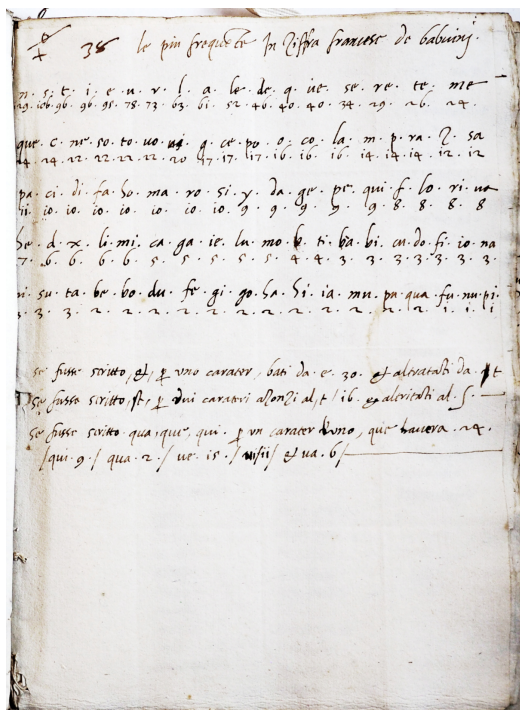 38 le piu frequẽte In Ziffra francese de babuinj.
n · s · t · i · e · u · r · l · a · le · de · q · ve · se · re · te · me
29 · 106 · 96 · 96 · 95 · 78 · 73 · 63 · 61 · 52 · 46 · 40 · 40 · 34 · 29 · 26 · 24 ·
que · c · ne · so · to · vo · g · ce · po · o · co · la · m · p · ra · Z · sa
24 · 24 · 22 · 22 · 22 · 22 · 20 · 17 · 17 · 17 · 16 · 16 · 16 · 14 · 14 · 14 · 12 · 12
pa · ci · di · fa · ho · ma · ro · si · y · da · ge · pe · qui · f · lo · ri · va
11 · 10 · 10 · 10 · 10 · 10 · 10 · 10 · 9 · 9 · 9 · 9 · 9 · 8 · 8 · 8 · 8
he · d · x · li · mi · ca · ga · ie · lu · mo · b · ti · ba · bi · cu · do · fi · io · na
7 · 6 · 6 · 6 · 6 · 5 · 5 · 5 · 5 · 5 · 4 · 4 · 3 · 3 · 3 · 3 · 3 · 3 · 3 ·
ni · su · ta · be · bo · du · fe · gi · go · ha · hi · ia · mu · pu · qua · fu · nu · pi ·
3 · 3 · 3 · 2 · 2 · 2 · 2 · 2 · 2 · 2 · 2 · 2 · 2 · 2 · 2 · 1 · 1 · 1
se fusse scritto, et, ꝑ vno carater, bati da · e · 30 · et altratati da · t
se fusse scritto, st, ꝑ dui carateri al, t / 16 · et al · s ·
se fusse scritto qua, que, qui · ꝑ vn carater que havera · 24 ·
/ qui · 9 · / qua · 2 · / ve · 15 · / et va · 6 /